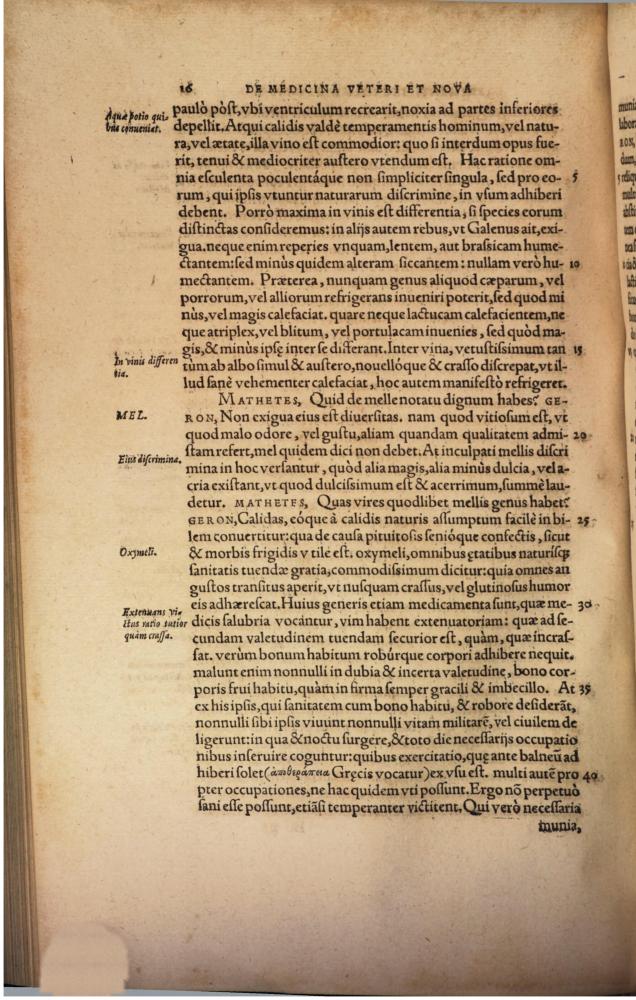 16 DE MEDICINA VETERI ET NOVA
Aquæ potio qui-
bus conueniat.
paulò pòst, vbi ventriculum recrearit, noxia ad partes inferiores
depellit. Atqui calidis valdè temperamentis hominum, vel natu-
ra, vel ætate, illa vino est commodior: quo si interdum opus fue-
rit, tenui & mediocriter austero vtendum est. Hac ratione om-
nia esculenta poculentáque non simpliciter singula, sed pro eo- 5
rum, qui ipsis vtuntur naturarum discrimine, in vsum adhiberi
debent. Porrò maxima in vinis est differentia, si species eorum
distinctas consideremus: in alijs autem rebus, vt Galenus ait, exi-
gua. neque enim reperies vnquam, lentem, aut brassicam hume-
ctantem: sed minùs quidem alteram siccantem: nullam verò hu- 10
mectantem. Præterea, nunquam genus aliquod cæparum, vel
porrorum, vel alliorum refrigerans inueniri poterit, sed quod mi
nùs, vel magis calefaciat. quare neque lactucam calefacientem, ne
que atriplex, vel blitum, vel portulacam inuenies, sed quòd ma-
gis, & minùs ipsę inter se differant. Inter vina, vetustissimum tan 15
In vinis differen
tia.
tùm ab albo simul & austero, nouellóque & crasso discrepat, vt il-
lud sanè vehementer calefaciat, hoc autem manifestò refrigeret.
MATHETES, Quid de melle notatu dignum habes? GE-
MEL.
RON, Non exigua eius est diuersitas. nam quod vitiosum est, vt
quod malo odore, vel gustu, aliam quandam qualitatem admi- 20
stam refert, mel quidem dici non debet. At inculpati mellis discri
Eius discrimina.
mina in hoc versantur, quòd alia magis, alia minùs dulcia, vel a-
cria existant, vt quod dulcissimum est & acerrimum, summè lau-
detur. MATHETES, Quas vires quodlibet mellis genus habet?
GERON, Calidas, eóque à calidis naturis assumptum facilè in bi- 25
lem conuertitur: qua de causa pituitosis senióque confectis, sicut
Oxymeli.
& morbis frigidis vtile est. oxymeli, omnibus ętatibus naturisq́;
sanitatis tuendæ gratia, commodissimum dicitur: quia omnes an
gustos transitus aperit, vt nusquam crassus, vel glutinosus humor
eis adhærescat. Huius generis etiam medicamenta sunt, quæ me- 30
Extenuans vi-
ctus ratio tutior
quàm crassa.
dicis salubria vocantur, vim habent extenuatoriam: quæ ad se-
cundam valetudinem tuendam securior est, quàm, quæ incras-
sat. verùm bonum habitum robúrque corpori adhibere nequit.
malunt enim nonnulli in dubia & incerta valetudine, bono cor-
poris frui habitu, quàm in firma semper gracili & imbecillo. At 35
ex his ipsis, qui sanitatem cum bono habitu, & robore desiderãt,
nonnulli sibi ipsis viuunt nonnulli vitam militarẽ, vel ciuilem de
ligerunt: in qua & noctu surgere, & toto die necessarijs occupatio
nibus inseruire coguntur: quibus exercitatio, quę ante balneũ ad
hiberi solet (ἀποθεράπεια Gręcis vocatur) ex vsu est. multi autẽ pro 40
pter occupationes, ne hac quidem vti possunt. Ergo nõ perpetuò
sani esse possunt, etiãsi temperanter victitent. Qui verò necessaria
munia,